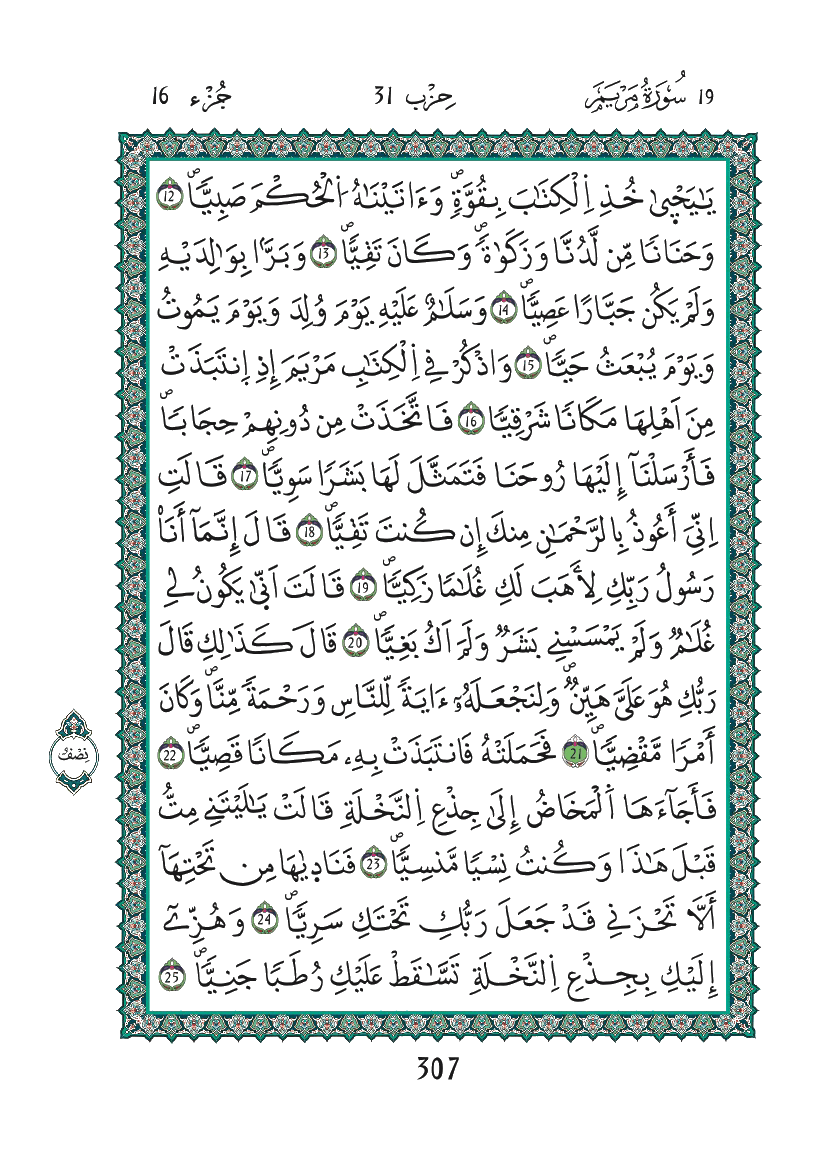 19 سُورَةُ مَرْيَمَ حِزْب 31 جُزْء 16
يَٰيَحْيىٰ خُذِ اِ۬لْكِتَٰبَ بِقُوَّةٖۖ وَءَاتَيْنَٰهُ اُ۬لْحُكْمَ صَبِيّاٗۖ 12
وَحَنَاناٗ مِّن لَّدُنَّا وَزَكَوٰةٗۖ وَكَانَ تَقِيّاٗۖ 13 وَبَرَّاۢ بِوَٰلِدَيْهِ
وَلَمْ يَكُن جَبَّاراً عَصِيّاٗۖ 14 وَسَلَٰمٌ عَلَيْهِ يَوْمَ وُلِدَ وَيَوْمَ يَمُوتُ
وَيَوْمَ يُبْعَثُ حَيّاٗۖ 15 وَاذْكُرْ فِے اِ۬لْكِتَٰبِ مَرْيَمَ إِذِ اِ۪نتَبَذَتْ
مِنَ اَهْلِهَا مَكَاناٗ شَرْقِيّاٗ 16 فَاتَّخَذَتْ مِن دُونِهِمْ حِجَاباٗۖ
فَأَرْسَلْنَآ إِلَيْهَا رُوحَنَا فَتَمَثَّلَ لَهَا بَشَراٗ سَوِيّاٗۖ 17 قَالَتِ
اِنِّيَ أَعُوذُ بِالرَّحْمَٰنِ مِنكَ إِن كُنتَ تَقِيّاٗۖ 18 قَالَ إِنَّمَآ أَنَا۠
رَسُولُ رَبِّكِ لِأَهَبَ لَكِ غُلَٰماٗ زَكِيّاٗۖ 19 قَالَتَ اَنّ۪يٰ يَكُونُ لِے
غُلَٰمٌ وَلَمْ يَمْسَسْنِے بَشَرٌ وَلَمَ اَكُ بَغِيّاٗۖ 20 قَالَ كَذَٰلِكِ قَالَ
رَبُّكِ هُوَ عَلَيَّ هَيِّنٌۖ وَلِنَجْعَلَهُۥٓ ءَايَةٗ لِّلنَّاسِ وَرَحْمَةٗ مِّنَّاۖ وَكَانَ
أَمْراٗ مَّقْضِيّاٗۖ 21 فَحَمَلَتْهُ فَانتَبَذَتْ بِهِۦ مَكَاناٗ قَصِيّاٗۖ 22
فَأَجَآءَهَا اَ۬لْمَخَاضُ إِلَىٰ جِذْعِ اِ۬لنَّخْلَةِ قَالَتْ يَٰلَيْتَنِے مِتُّ
قَبْلَ هَٰذَا وَكُنتُ نِسْياٗ مَّنسِيّاٗۖ 23 فَنَاد۪يٰهَا مِن تَحْتِهَآ
أَلَّا تَحْزَنِے قَدْ جَعَلَ رَبُّكِ تَحْتَكِ سَرِيّاٗۖ 24 وَهُزِّےٓ
إِلَيْكِ بِجِذْعِ اِ۬لنَّخْلَةِ تَسَّٰقَطْ عَلَيْكِ رُطَباٗ جَنِيّاٗۖ 25
نِصْفُ
307